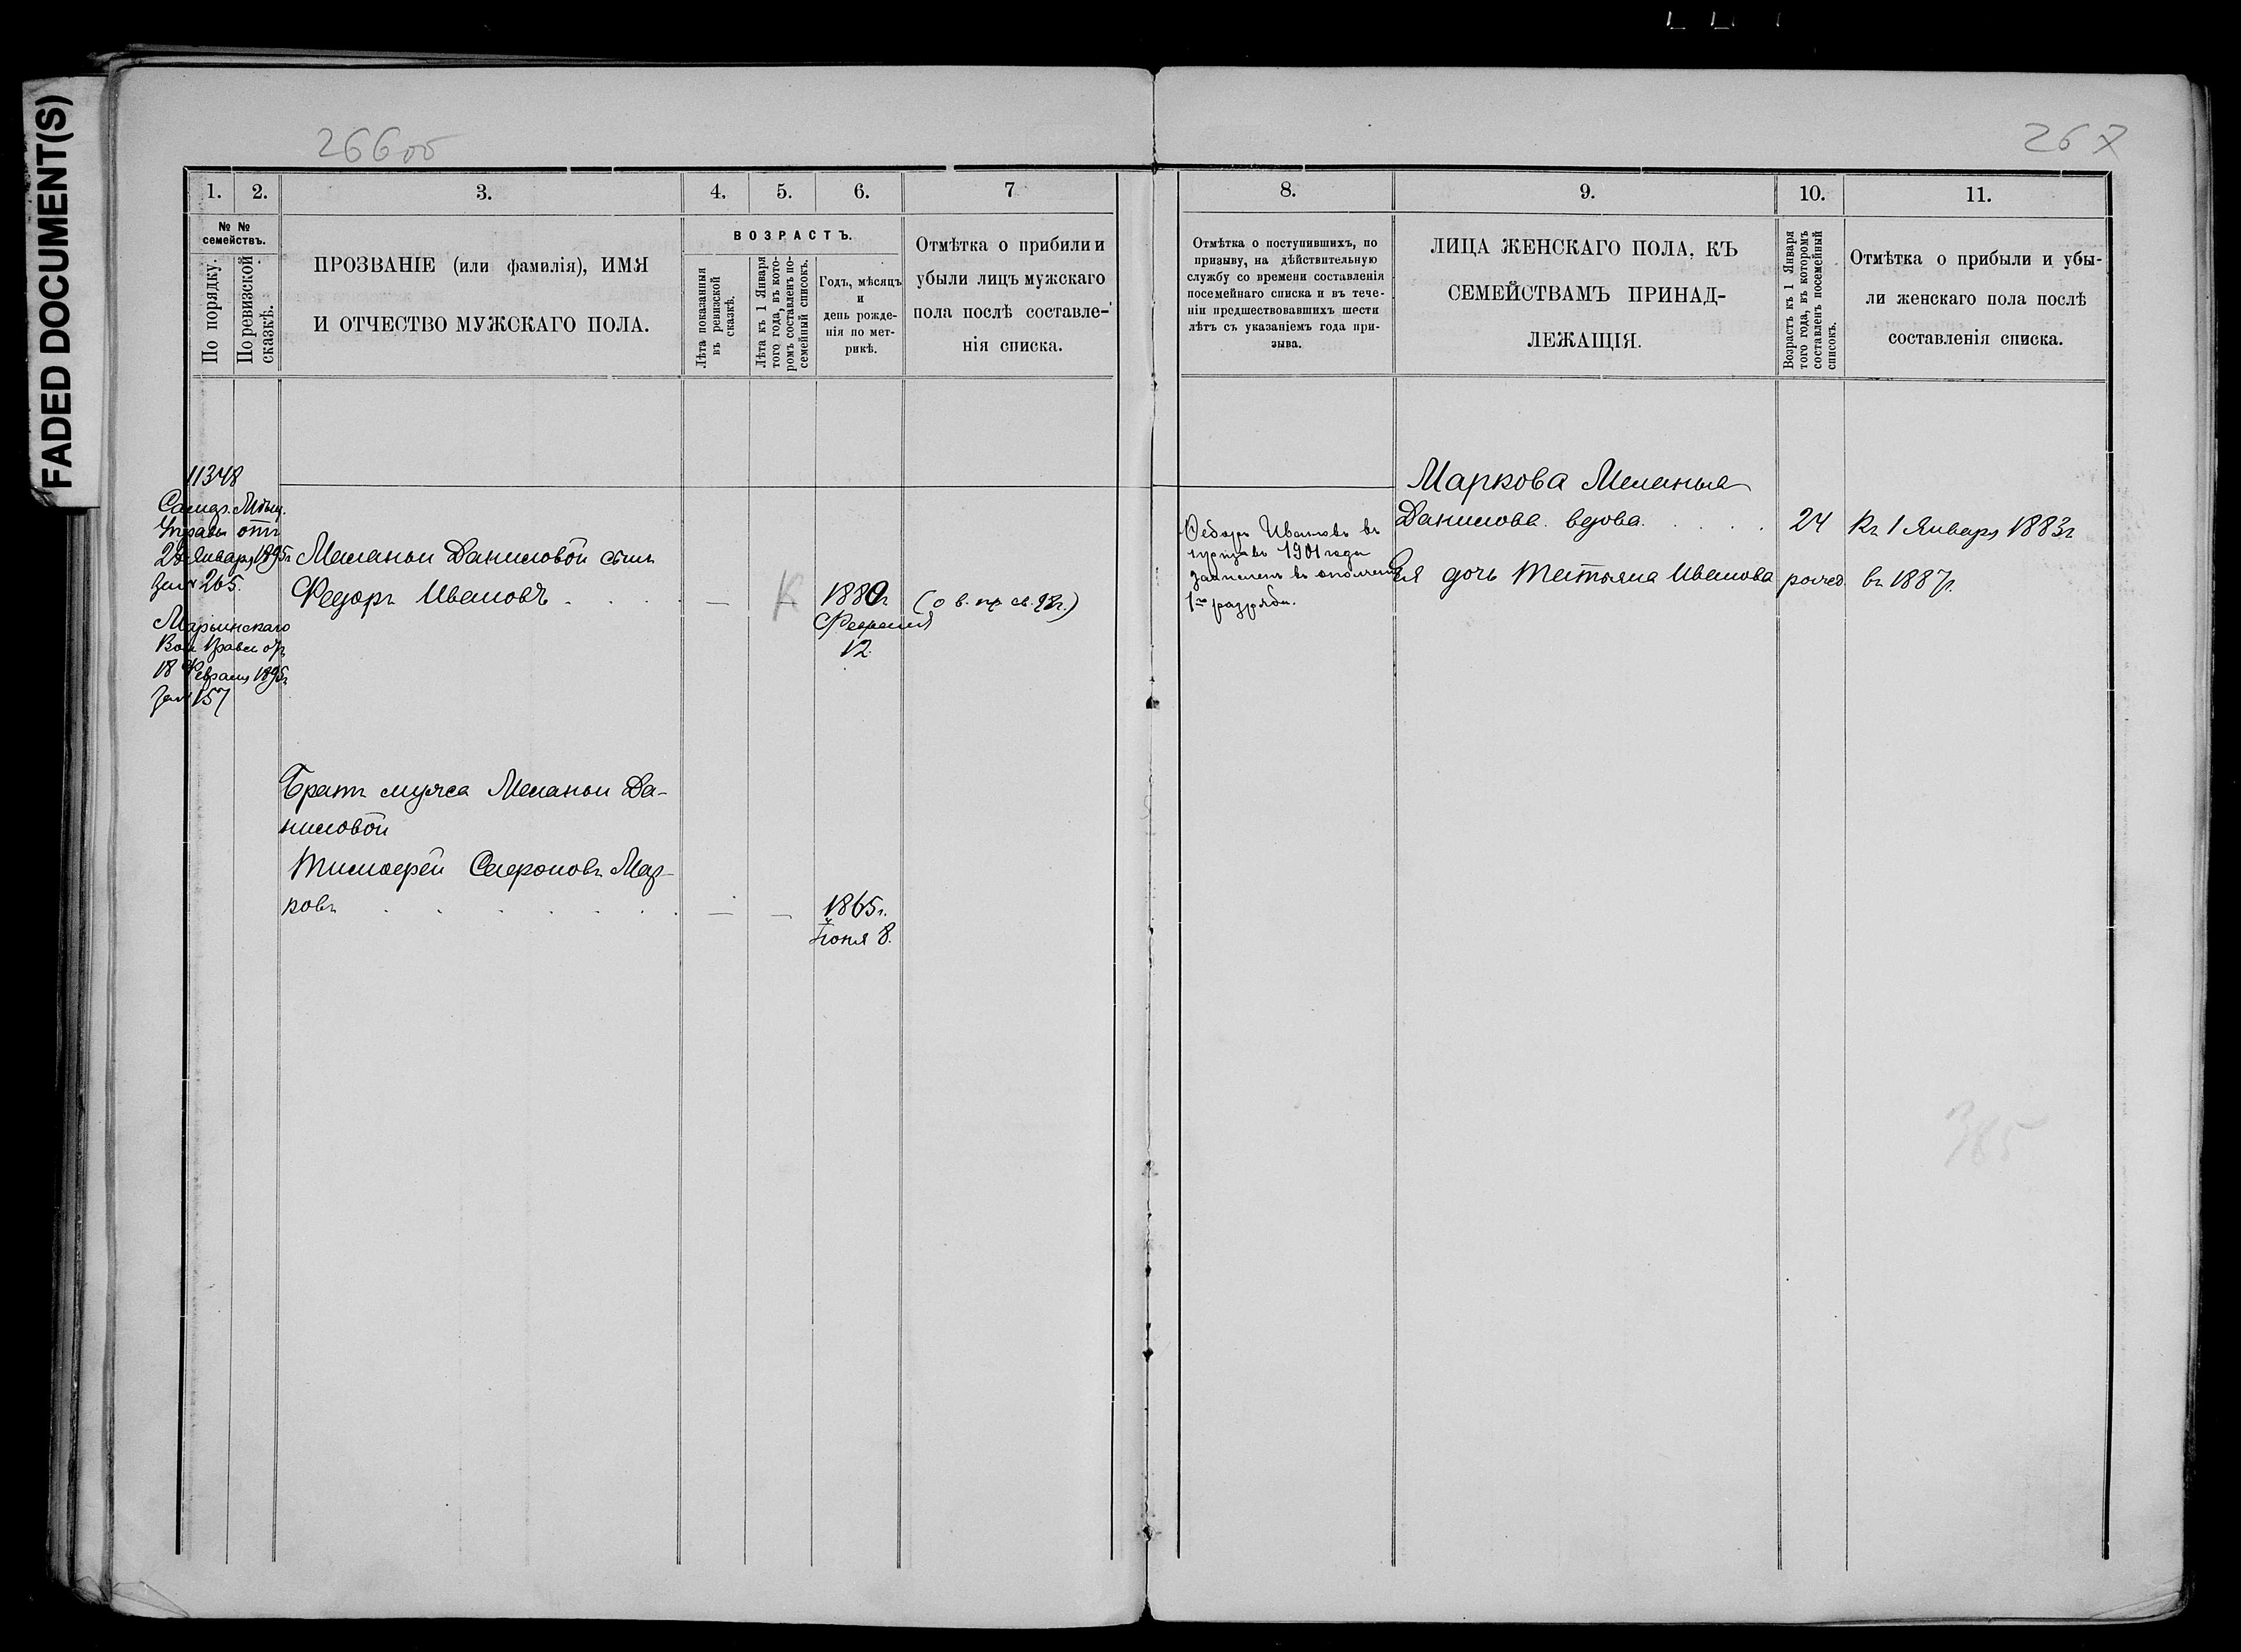 FADED DOCUMENT(S)
266об
267
1. 2. 3. 4. 5. 6. 7
№ №
семействъ.
По порядку.
По ревизской
сказкѣ.
ПРОЗВАНІЕ (или фамилія), ИМЯ
И ОТЧЕСТВО МУЖСКАГО ПОЛА.
ВОЗРАСТЪ.
Лѣта показанныя
въ ревизской
сказкѣ.
Лѣта къ 1 Января
того года, въ кото-
ромъ составленъ по-
семейный списокъ.
Годъ, мѣсяцъ
и
день рожде-
нія по мет-
рикѣ.
Отмѣтка о прибыли и
убыли лицъ мужскаго
пола послѣ составле-
нія списка.
11348
Самар. Мѣщ.
Управы отъ
28 Января 1895г
за № 265.
Марьинскаго
Вол Правл отъ
18 Февраля 1895г
за № 157
Меланьи Даниловой сынъ
Федоръ Ивановъ . . . . — К 1880г (о в. пр св. 98г.)
Февраля
12.
Братъ мужа Меланьи Да-
ниловой
Тимофей Софроновъ Мар-
ковъ . . . . . . . — — 1865г.
Іюня 8.
8. 9. 10. 11.
Отмѣтка о поступившихъ, по
призыву, на дѣйствительную
службу со времени составленія
посемейнаго списка и въ тече-
ніи предшествовавшихъ шести
лѣтъ съ указаніемъ года при-
зыва.
ЛИЦА ЖЕНСКАГО ПОЛА, КЪ
СЕМЕЙСТВАМЪ ПРИНАД-
ЛЕЖАЩІЯ.
Возрастъ къ 1 Января
того года, въ которомъ
составленъ посемейный
списокъ.
Отмѣтка о прибыли и убы-
ли женскаго пола послѣ
составленія списка.
Федоръ Ивановъ въ
призывъ 1901 года
зачисленъ въ ополчен
1го разряда.
Маркова Меланья
Данилова вдова. . . . . 24 Къ 1 Января 1883г
Ея дочь Татьяна Иванова рожд. въ 1887г.
385